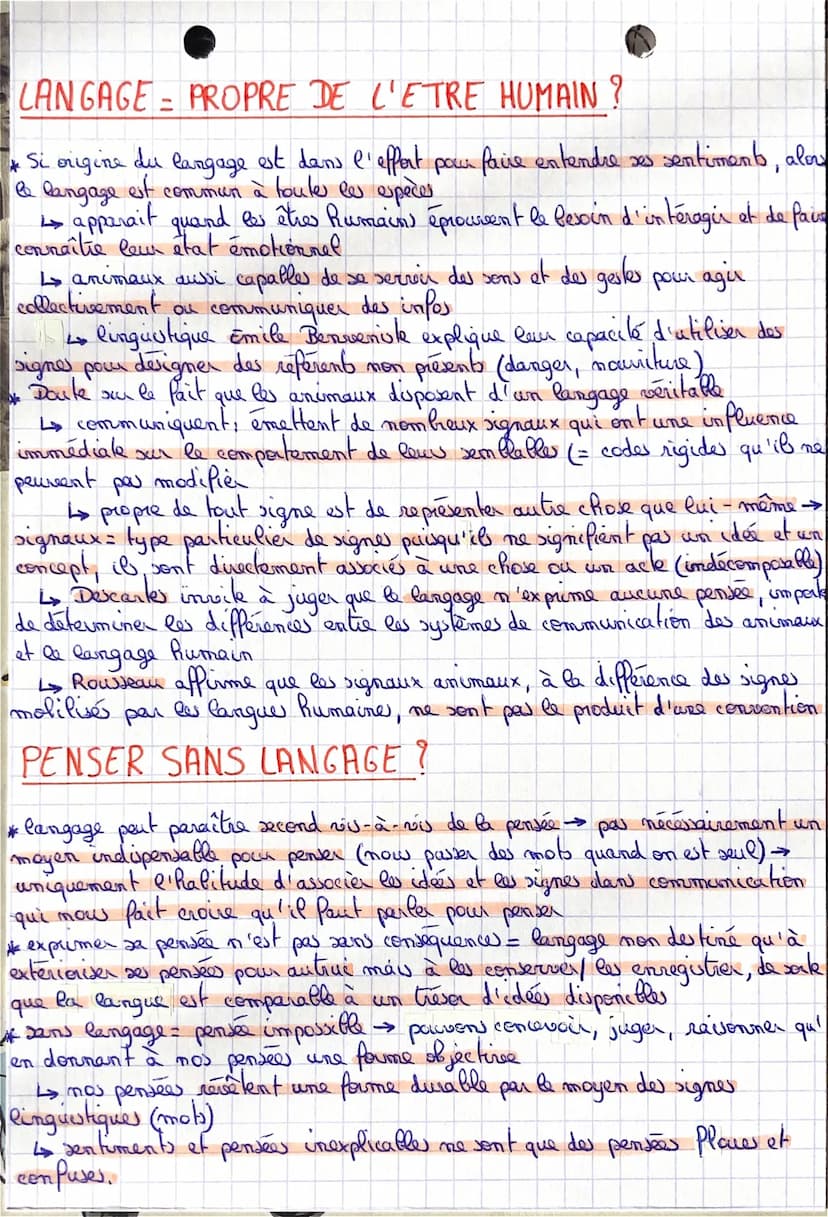 LANGAGE = PROPRE DE L'ETRE HUMAIN ?
* Si origine du langage est dans l'effort pour faire entendre ses sentiments, alors
le langage est commun à toutes les espèces
↳ apparait quand les êtres humains éprouvent le besoin d'intéragir et de faire
connaître leur état émotionnel
↳ animaux aussi capables de se servir des sons et des gestes pour agir
collectivement ou communiquer des infos
↳ linguistique Emile Benveniste explique leur capacité d'utiliser des
signes pour désigner des référents non présents (danger, nourriture)
* Doute sur le fait que les animaux disposent d'un langage véritable
↳ communiquent, émettent de nombreux signaux qui ont une influence
immédiate sur le comportement de leurs semblables (= codes rigides qu'ils ne
peuvent pas modifier
↳ propre de tout signe est de représenter autre chose que lui-même →
signaux = type particulier de signes puisqu'ils ne signifient pas un idée et un
concept, ils sont directement associés à une chose ou un acte (indécomposable)
↳ Descartes invite à juger que le langage n'exprime aucune pensée, importe
de déterminer les différences entre les systèmes de communication des animaux
et le langage humain
↳ Rousseau affirme que les signaux animaux, à la différence des signes
mobilisés par les langues humaines, ne sont pas le produit d'une convention
PENSER SANS LANGAGE ?
* langage peut paraître second vis-à-vis de la pensée → pas nécessairement un
moyen indispensable pour penser (nous passer des mots quand on est seul) →
uniquement l'habitude d'associer les idées et les signes dans communication
qui nous fait croire qu'il faut parler pour penser
* exprimer sa pensée n'est pas sans conséquences = langage non destiné qu'à
extérioriser ses pensées pour autrui mais à les conserver/les enregistrer, de sorte
que la langue est comparable à un trésor d'idées disponibles
* sans langage = pensée impossible → pouvons concevoir, juger, raisonner qu'
en donnant à nos pensées une forme objective
↳ nos pensées revêtent une forme durable par le moyen des signes
linguistiques (mots)
↳ sentiments et pensées inexplicables ne sont que des pensées floues et
confuses.